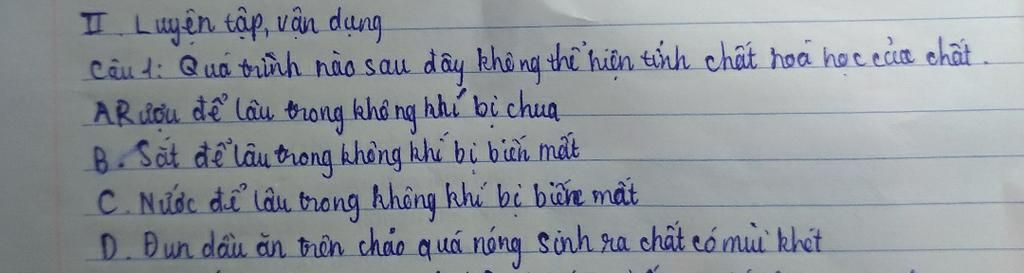 II. Luyện tập, vận dụng
Câu 1: Quá trình nào sau đây không thể hiện tính chất hoá học của chất.
A Rượu để lâu trong không khí bị chua
B. Sắt để lâu trong không khí bị biến mất
C. Nước để lâu trong không khí bị biến mất
D. Đun dầu ăn trên chảo quá nóng sinh ra chất có mùi khét